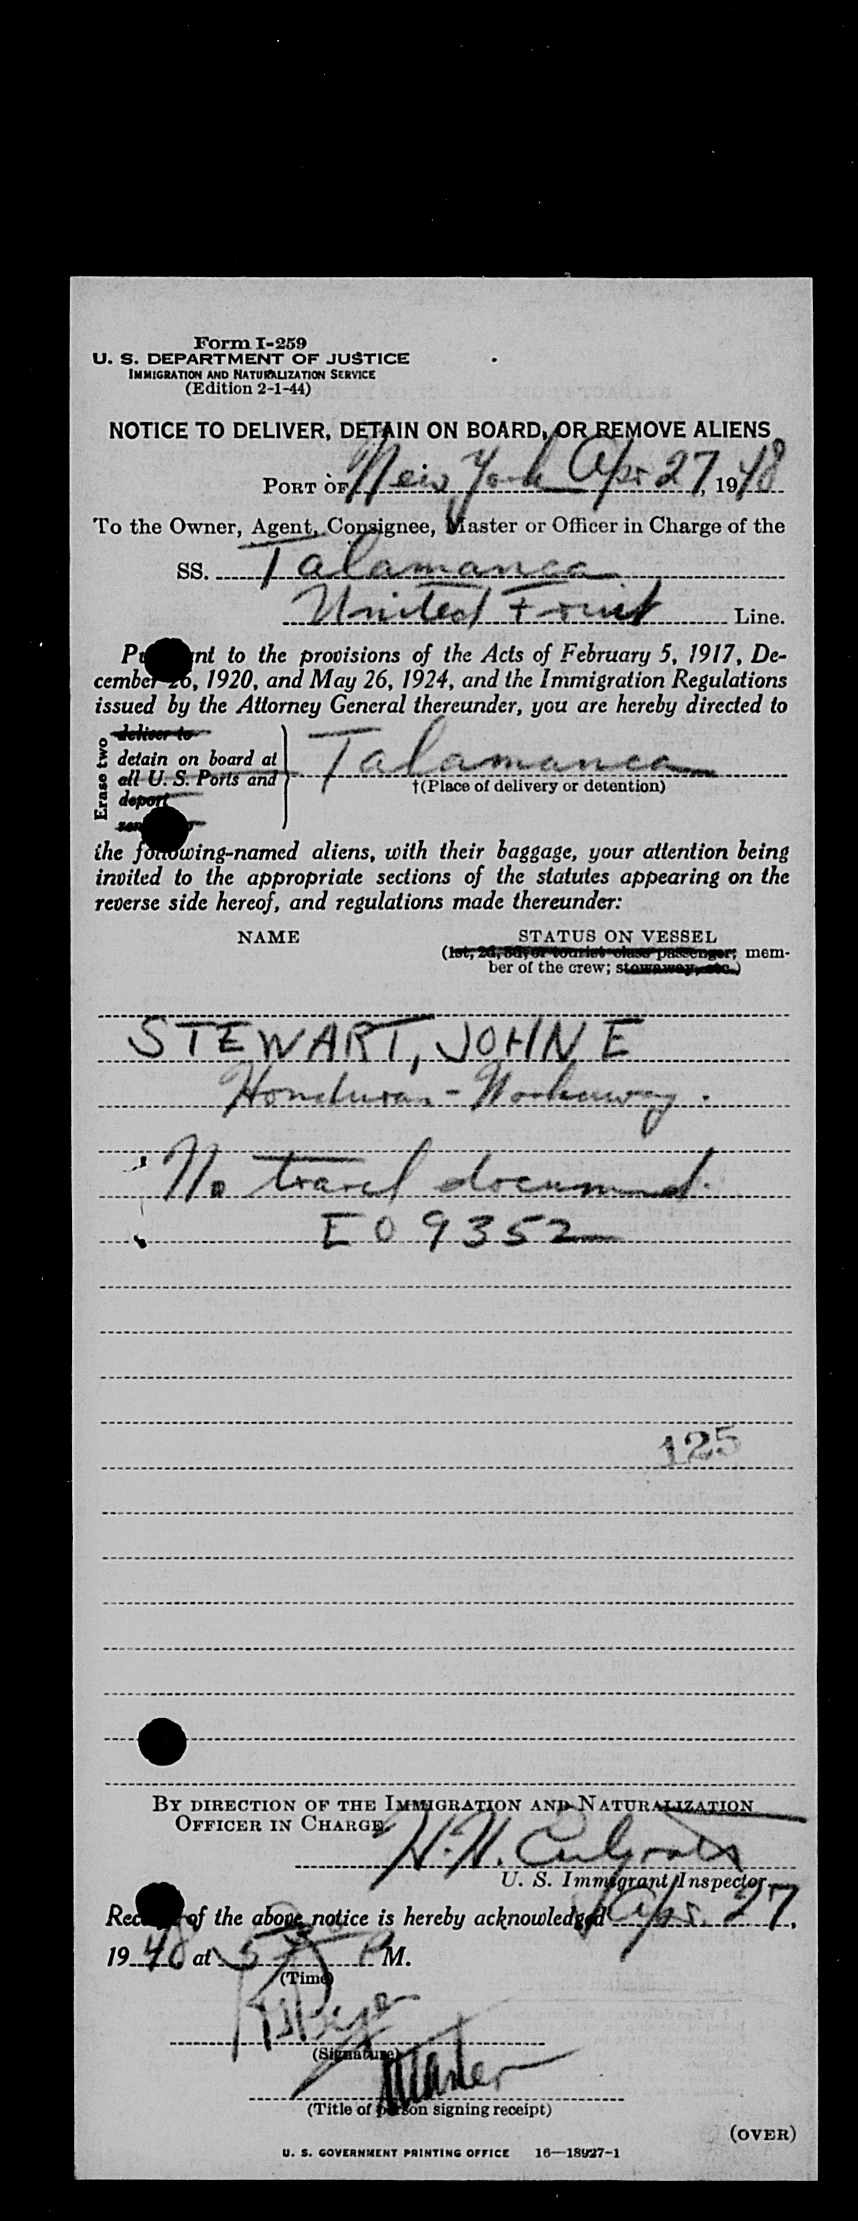 Form I-259
U. S. DEPARTMENT OF JUSTICE
IMMIGRATION AND NATURALIZATION SERVICE
(Edition 2-1-44)
NOTICE TO DELIVER, DETAIN ON BOARD, OR REMOVE ALIENS
PORT OF New York Apr 27, 1948
To the Owner, Agent, Consignee, Master or Officer in Charge of the
SS. Talamanca
United Fruit Line.
Pursuant to the provisions of the Acts of February 5, 1917, De-
cember 26, 1920, and May 26, 1924, and the Immigration Regulations
issued by the Attorney General thereunder, you are hereby directed to
Erase two
deliver to
detain on board at
all U. S. Ports and
deport
Talamanca
†(Place of delivery or detention)
the following-named aliens, with their baggage, your attention being
invited to the appropriate sections of the statutes appearing on the
reverse side hereof, and regulations made thereunder:
NAME STATUS ON VESSEL
(1st, 2d, 3d, or tourist class passenger; mem-
ber of the crew; stowaway, etc.)
STEWART, JOHN E
Honduran - Workaway.
No travel document.
E09352
125
BY DIRECTION OF THE IMMIGRATION AND NATURALIZATION
OFFICER IN CHARGE.
H. H.
U. S. Immigrant Inspector.
Receipt of the above notice is hereby acknowledged Apr. 27,
1948 at 5 PM.
(Time)
(Signature)
Master
(Title of person signing receipt)
(OVER)
U. S. GOVERNMENT PRINTING OFFICE 16—18927-1